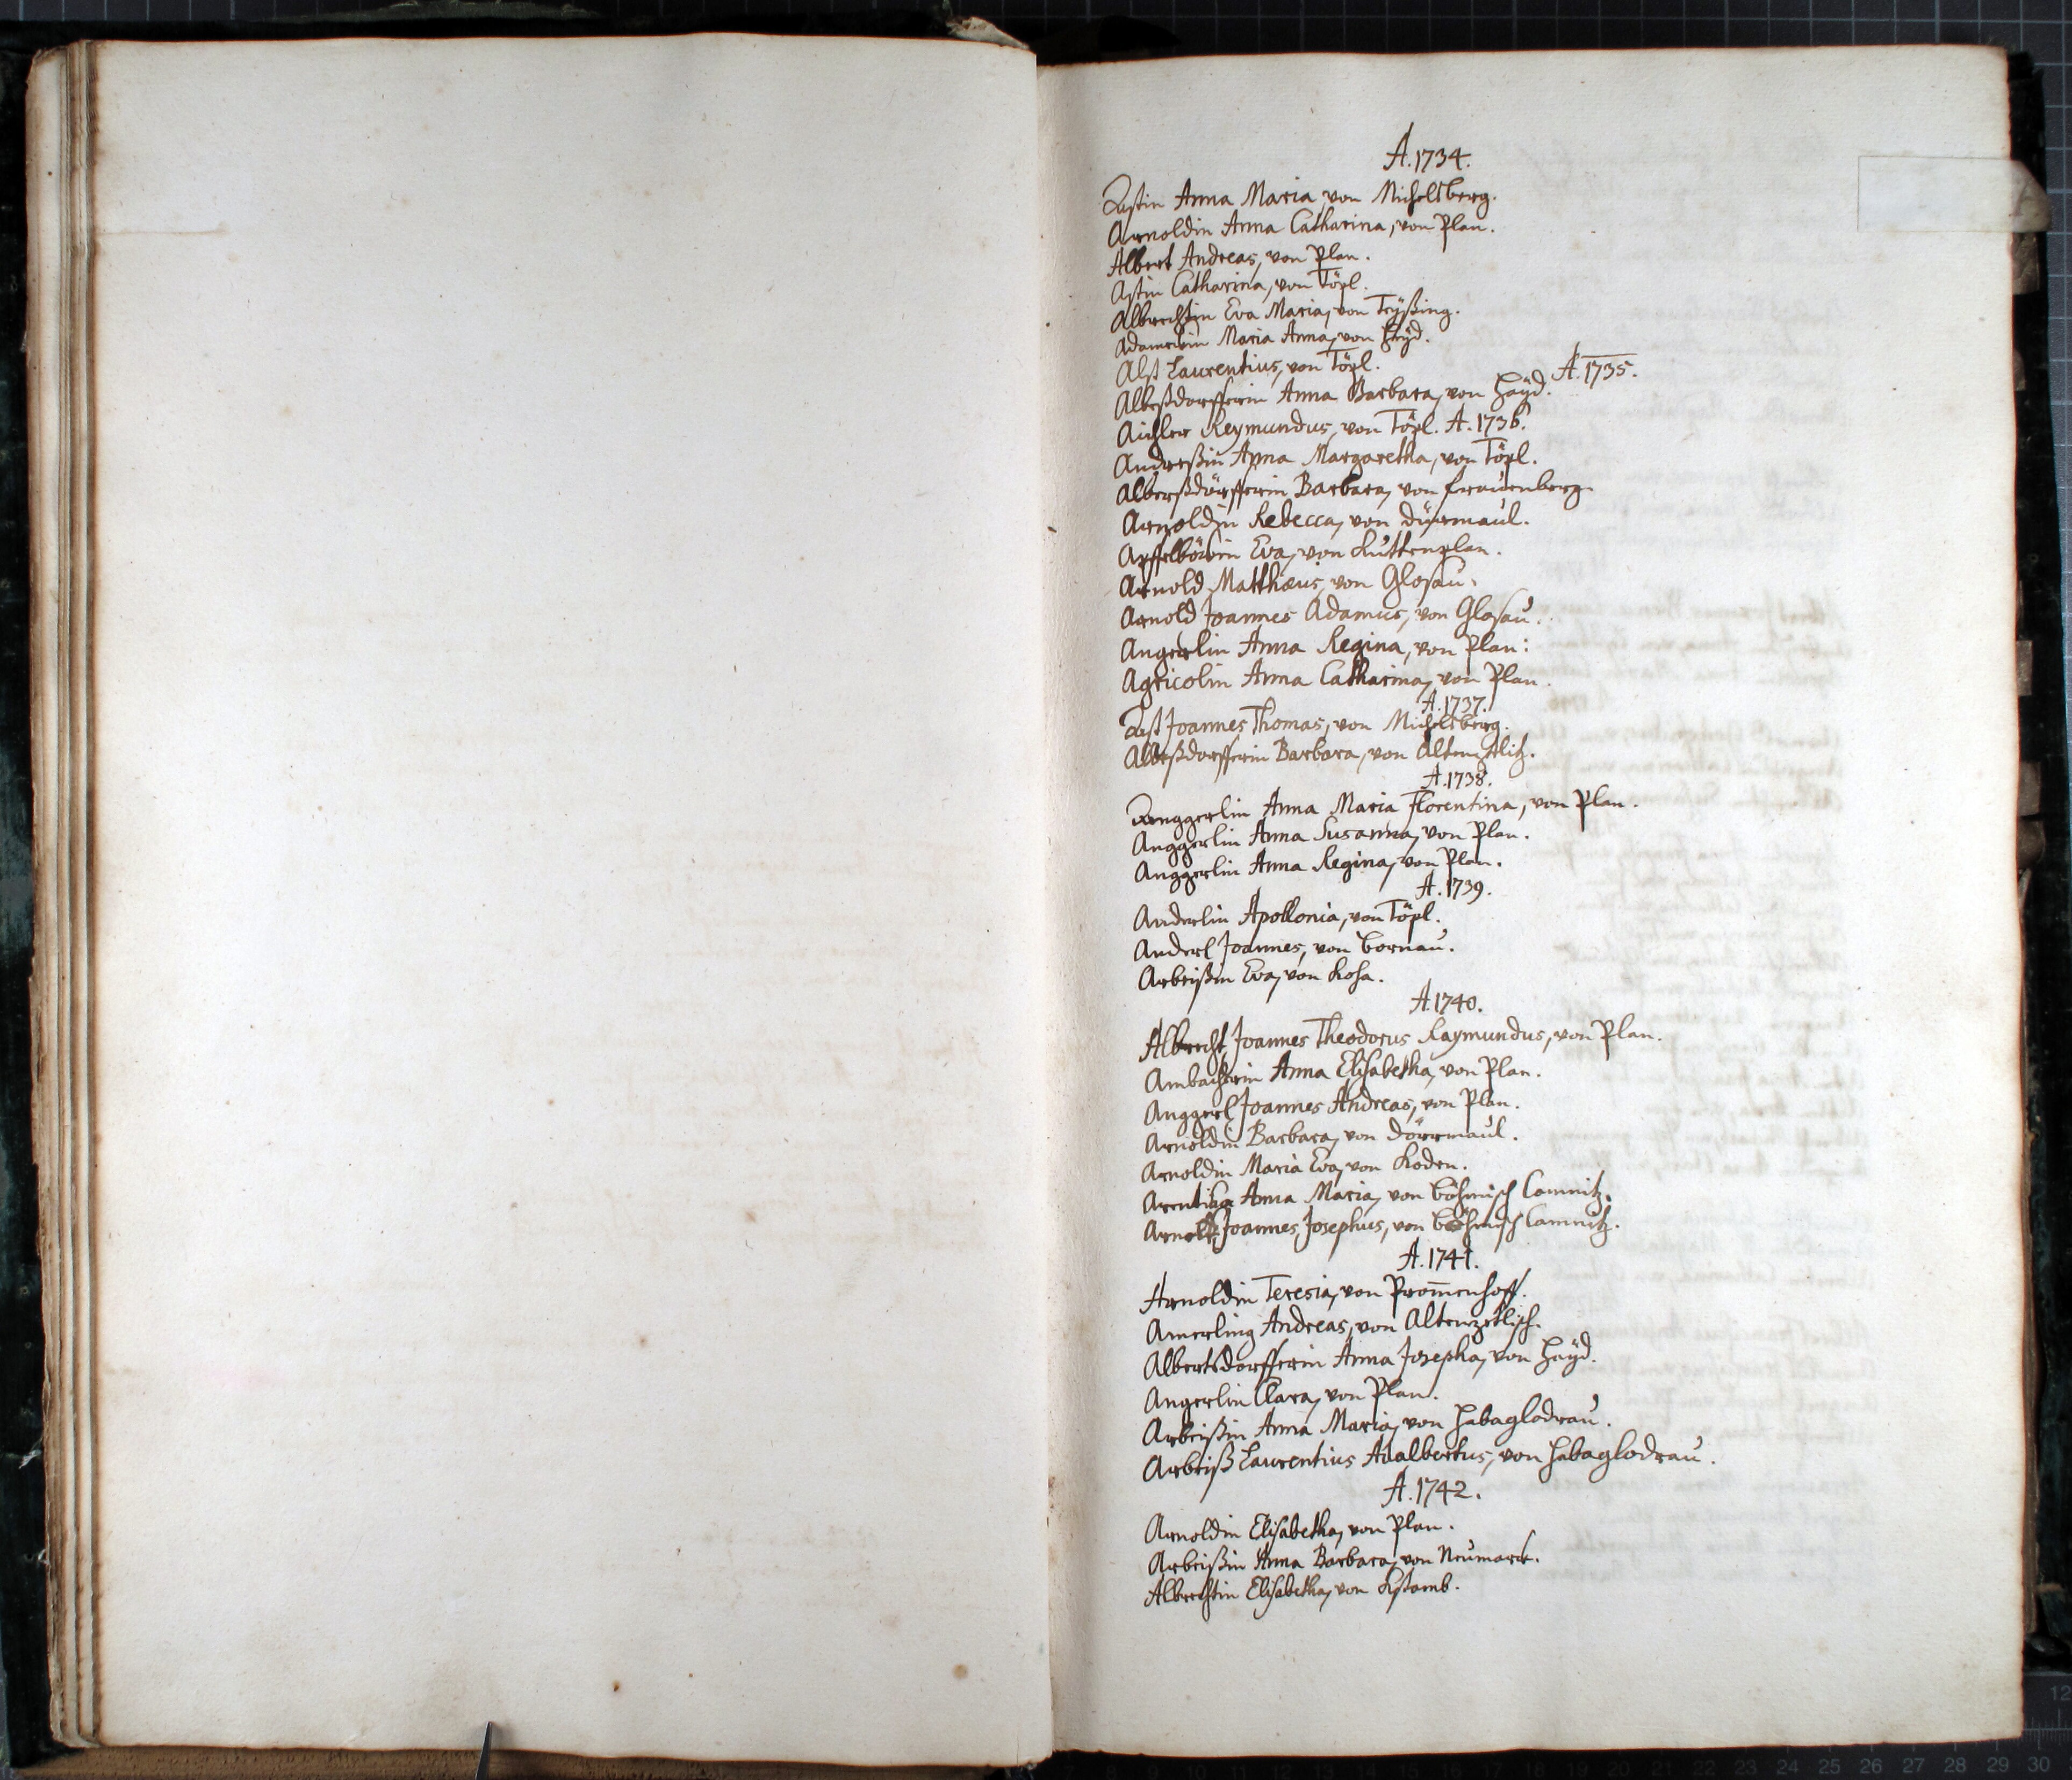 A. 1734.
Astin Anna Maria, von Michelsberg.
Arnoldin Anna Catharina, von Plan.
Albert Andreas, von Plan.
Astin Catharina, von Töpl.
Albrechtin Eva Maria, von Teyßing.
Maria Anna, von Heyd.
Alst Laurentius, von Töpl.
A. 1735.
Albeßdorfferin Anna Barbara, von Hayd.
Aichler Reymundus, von Töpl. A. 1736.
Andreßin Anna Margaretha, von Töpl.
Alberßdörfferin Barbara, von Frauenberg.
Arnoldin Rebecca, von Dürmaul.
Eva, von Kuttenplan.
Arnold Matthæus, von Glosau.
Arnold Joannes Adamus, von Glosau.
Angerlin Anna Regina, von Plan:
Agricolin Anna Catharina, von Plan.
A. 1737.
Ast Joannes Thomas, von Michelsberg.
Albeßdorfferin Barbara, von Altenzetlitz.
A. 1738.
Anggerlin Anna Maria Florentina, von Plan.
Anggerlin Anna Susanna, von Plan.
Anggerlin Anna Regina, von Plan.
A. 1739.
Anderlin Apollonia, von Töpl.
Anderl Joannes, von Bornau.
Arbeißin Eva, von Kosa.
A. 1740.
Albrecht Joannes Theodorus Raymundus, von Plan.
Ambacherin Anna Elisabetha, von Plan.
Anggerl Joannes Andreas, von Plan.
Arnoldin Barbara, von Dörrmaul.
Arnoldin Maria Eva, von Koden.
Anna Maria, von Böhmisch Camnitz.
Arnolt, Joannes Josephus, von Böhmisch Camnitz.
A. 1741.
Arnoldin Teresia, von Prom̄enhoff.
Amerling Andreas, von Altenzetlisch.
Albertsdorfferin Anna Josepha, von Hayd.
Angerlin Clara, von Plan.
Arbeißin Anna Maria, von Habagladrau.
Arbeiß Laurentius Adalbertus, von Habagladrau.
A. 1742.
Arnoldin Elisabetha, von Plan.
Arbeißin Anna Barbara, von Neumarck.
Albrechtin Elisabetha, von Kstamb.